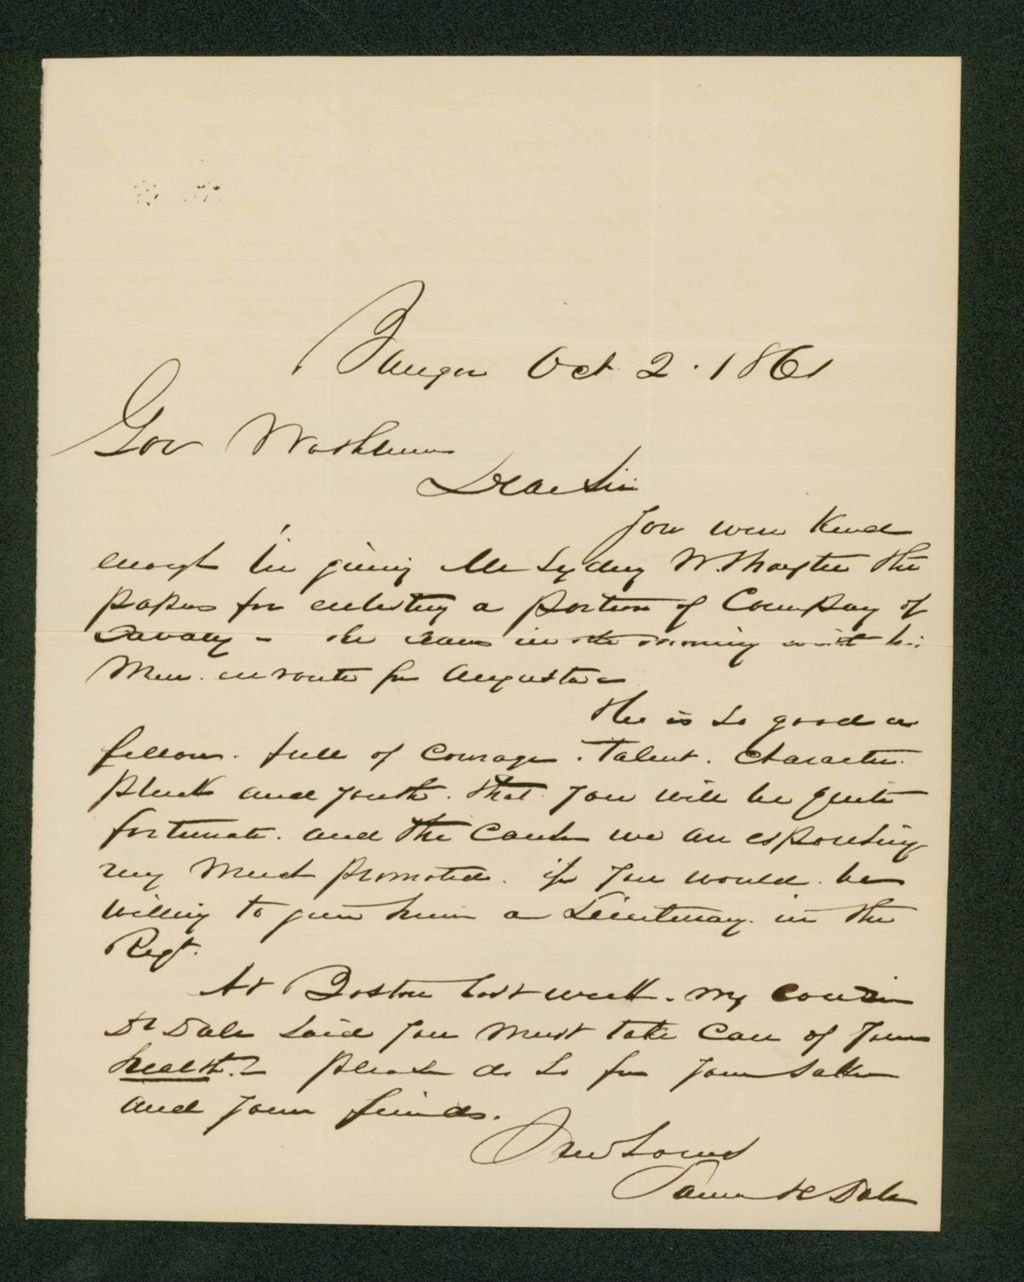 Bangor Oct 2. 1861
Gov Washburn
Dear Sir
You were kind
enough in giving Mr Sydney W. Thaxter the
papers for enlisting a portion of Company of
Cavalry - he leaves in the morning with his
Men. en route for Augusta -
He is so good a
fellow. full of courage. talent. character.
pluck and youth. that you will be quite
fortunate. and the cause we are espousing
very much promoted. if you would be
willing to give him a Lieutenancy. in the
Regt.
At Boston last week. my cousin
Dr Dale said you must take care of your
health. - please do so for your sake
and your friends.
Yours
Samuel H Dale